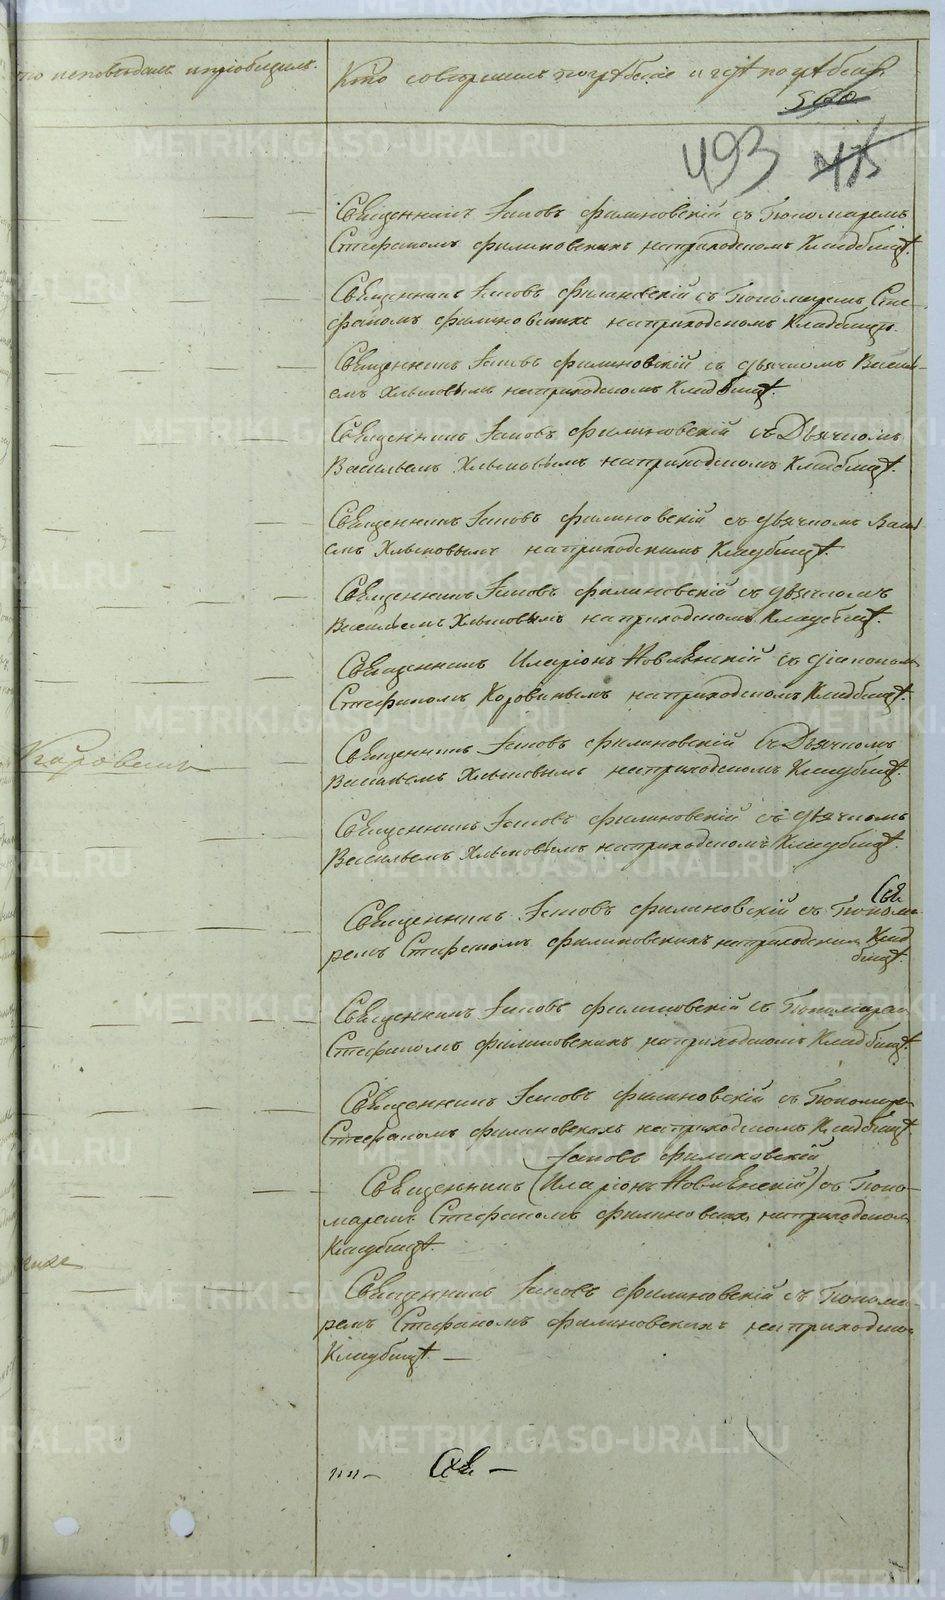 то исповедалъ и пріобщалъ.
Кто совершалъ погребеніе и гдѣ погребены
560
493
Священникъ Іаковъ Филиновскій съ Пономаремъ
Стефаномъ Филиновскихъ на приходскомъ Кладбищѣ.
Священникъ Іаковъ Филиновскій съ Пономаремъ Сте-
фаномъ Филиновскихъ на приходскомъ Кладбищѣ.
Священникъ Іаковъ Филиновскій съ дьячкомъ Василь-
емъ Хлыновымъ на приходскомъ Кладбищѣ.
Священникъ Іаковъ Филиновскій съ Дьячкомъ
Васильемъ Хлыновымъ на приходскомъ Кладбищѣ.
Священникъ Іаковъ Филиновскій съ дьячкомъ Василь-
емъ Хлыновымъ на приходскомъ Кладбищѣ.
Священникъ Іаковъ Филиновскій съ дьячкомъ
Васильемъ Хлыновымъ на приходскомъ Кладбищѣ.
Священникъ Иларіонъ съ діакономъ
Стефаномъ Коровинымъ на приходскомъ Кладбищѣ.
Священникъ Іаковъ Филиновскій съ Дьячкомъ
Васильемъ Хлыновымъ на приходскомъ Кладбищѣ.
Священникъ Іаковъ Филиновскій съ дьячкомъ
Васильемъ Хлыновымъ на приходскомъ Кладбищѣ.
Священникъ Іаковъ Филиновскій съ Понома-
ремъ Стефаномъ Филиновскихъ на приходскомъ Клад
бищѣ.
Священникъ Іаковъ Филиновскій съ Пономаремъ
Стефаномъ Филиновскихъ на приходскомъ Кладбищѣ.
Священникъ Іаковъ Филиновскій съ Пономаремъ
Стефаномъ Филиновскихъ на приходскомъ Кладбищѣ.
Іаковъ Филиновскій
Священникъ (Иларіонъ) съ Поно-
маремъ Стефаномъ Филиновскихъ на приходскомъ
Кладбищѣ.
Священникъ Іаковъ Филиновскій съ Понома-
ремъ Стефаномъ Филиновскихъ на приходскомъ
Кладбищѣ. —
METRIKI.GASO-URAL.RU